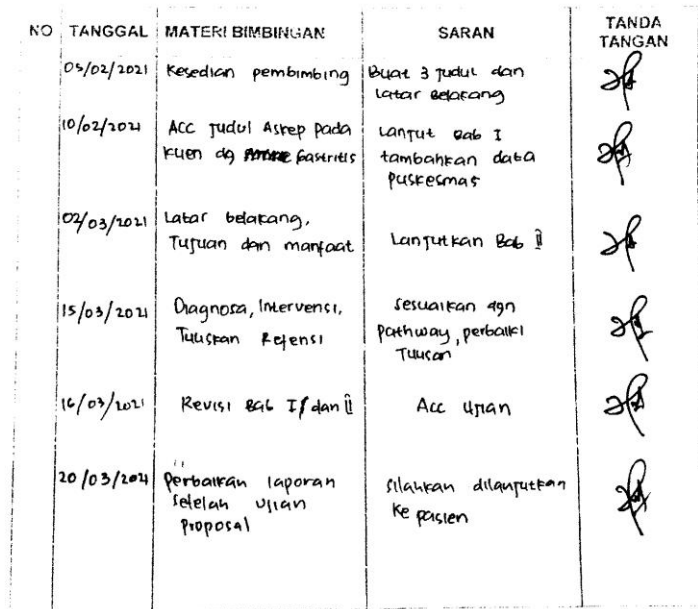 NO TANGGAL MATERI BIMBINGAN SARAN TANDA TANGAN
05/02/2021 Kesedian pembimbing Buat 3 judul dan
latar belakang
10/02/2021 ACC judul Askep pada Lanjut Bab I
klien dg Gastritis tambahkan data
puskesmas
02/03/2021 Latar belakang,
Tujuan dan manfaat Lanjutkan Bab II
15/03/2021 Diagnosa, Intervensi, sesuaikan dgn
Tuliskan Refensi pathway, perbaiki
Tulisan
16/03/2021 Revisi Bab I/dan II Acc Ujian
20/03/2021 Perbaikan laporan silahkan dilanjutkan
setelah ujian ke pasien
proposal